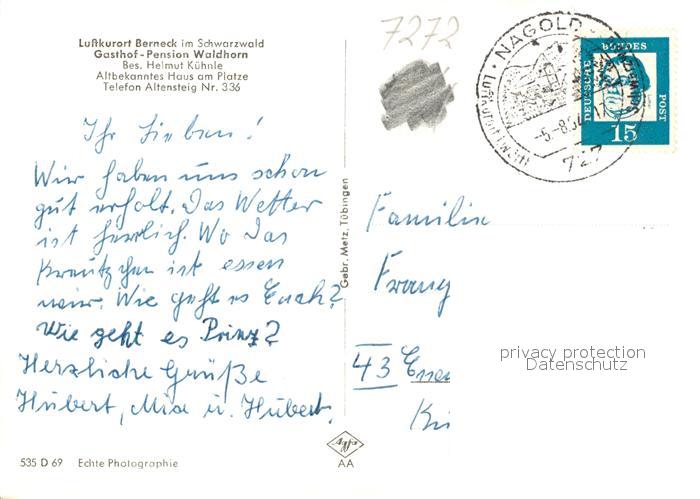 7272
Luftkurort Berneck im Schwarzwald
Gasthof-Pension Waldhorn
Bes. Helmut Kühnle
Altbekanntes Haus am Platze
Telefon Altensteig Nr. 336
NAGOLD
DEUTSCHE BUNDESPOST
15
Ihr Lieben!
Wir haben uns schon
gut erholt. Das Wetter
ist herrlich. Wo das
Kreutzchen ist essen
wir. Wie geht es Euch?
Wie geht es Prinz?
Herzliche Grüße
Hubert, Mia u. Hubert.
Gebr. Metz, Tübingen
Familie
Franz
43 Essen
privacy protection
Datenschutz
535 D 69 Echte Photographie
Agfa
AA